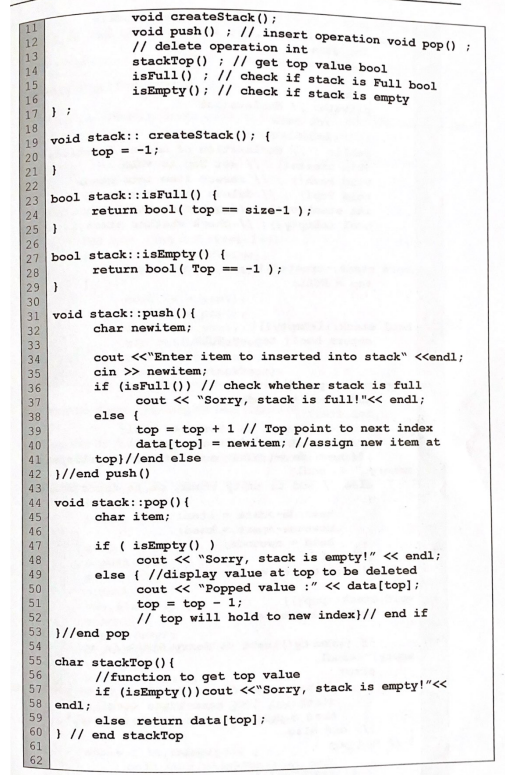 11 void createStack();
12 void push() ; // insert operation void pop() ;
13 // delete operation int
14 stackTop() ; // get top value bool
15 isFull() ; // check if stack is Full bool
16 isEmpty(); // check if stack is empty
17 } ;
18
19 void stack:: createStack(); {
20 top = -1;
21 }
22
23 bool stack::isFull() {
24 return bool( top == size-1 );
25 }
26
27 bool stack::isEmpty() {
28 return bool( Top == -1 );
29 }
30
31 void stack::push(){
32 char newitem;
33
34 cout <<"Enter item to inserted into stack" <<endl;
35 cin >> newitem;
36 if (isFull()) // check whether stack is full
37 cout << "Sorry, stack is full!"<< endl;
38 else {
39 top = top + 1 // Top point to next index
40 data[top] = newitem; //assign new item at
41 top}//end else
42 }//end push()
43
44 void stack::pop(){
45 char item;
46
47 if ( isEmpty() )
48 cout << "Sorry, stack is empty!" << endl;
49 else { //display value at top to be deleted
50 cout << "Popped value :" << data[top];
51 top = top - 1;
52 // top will hold to new index}// end if
53 }//end pop
54
55 char stackTop(){
56 //function to get top value
57 if (isEmpty())cout <<"Sorry, stack is empty!"<<
58 endl;
59 else return data[top];
60 } // end stackTop
61
62